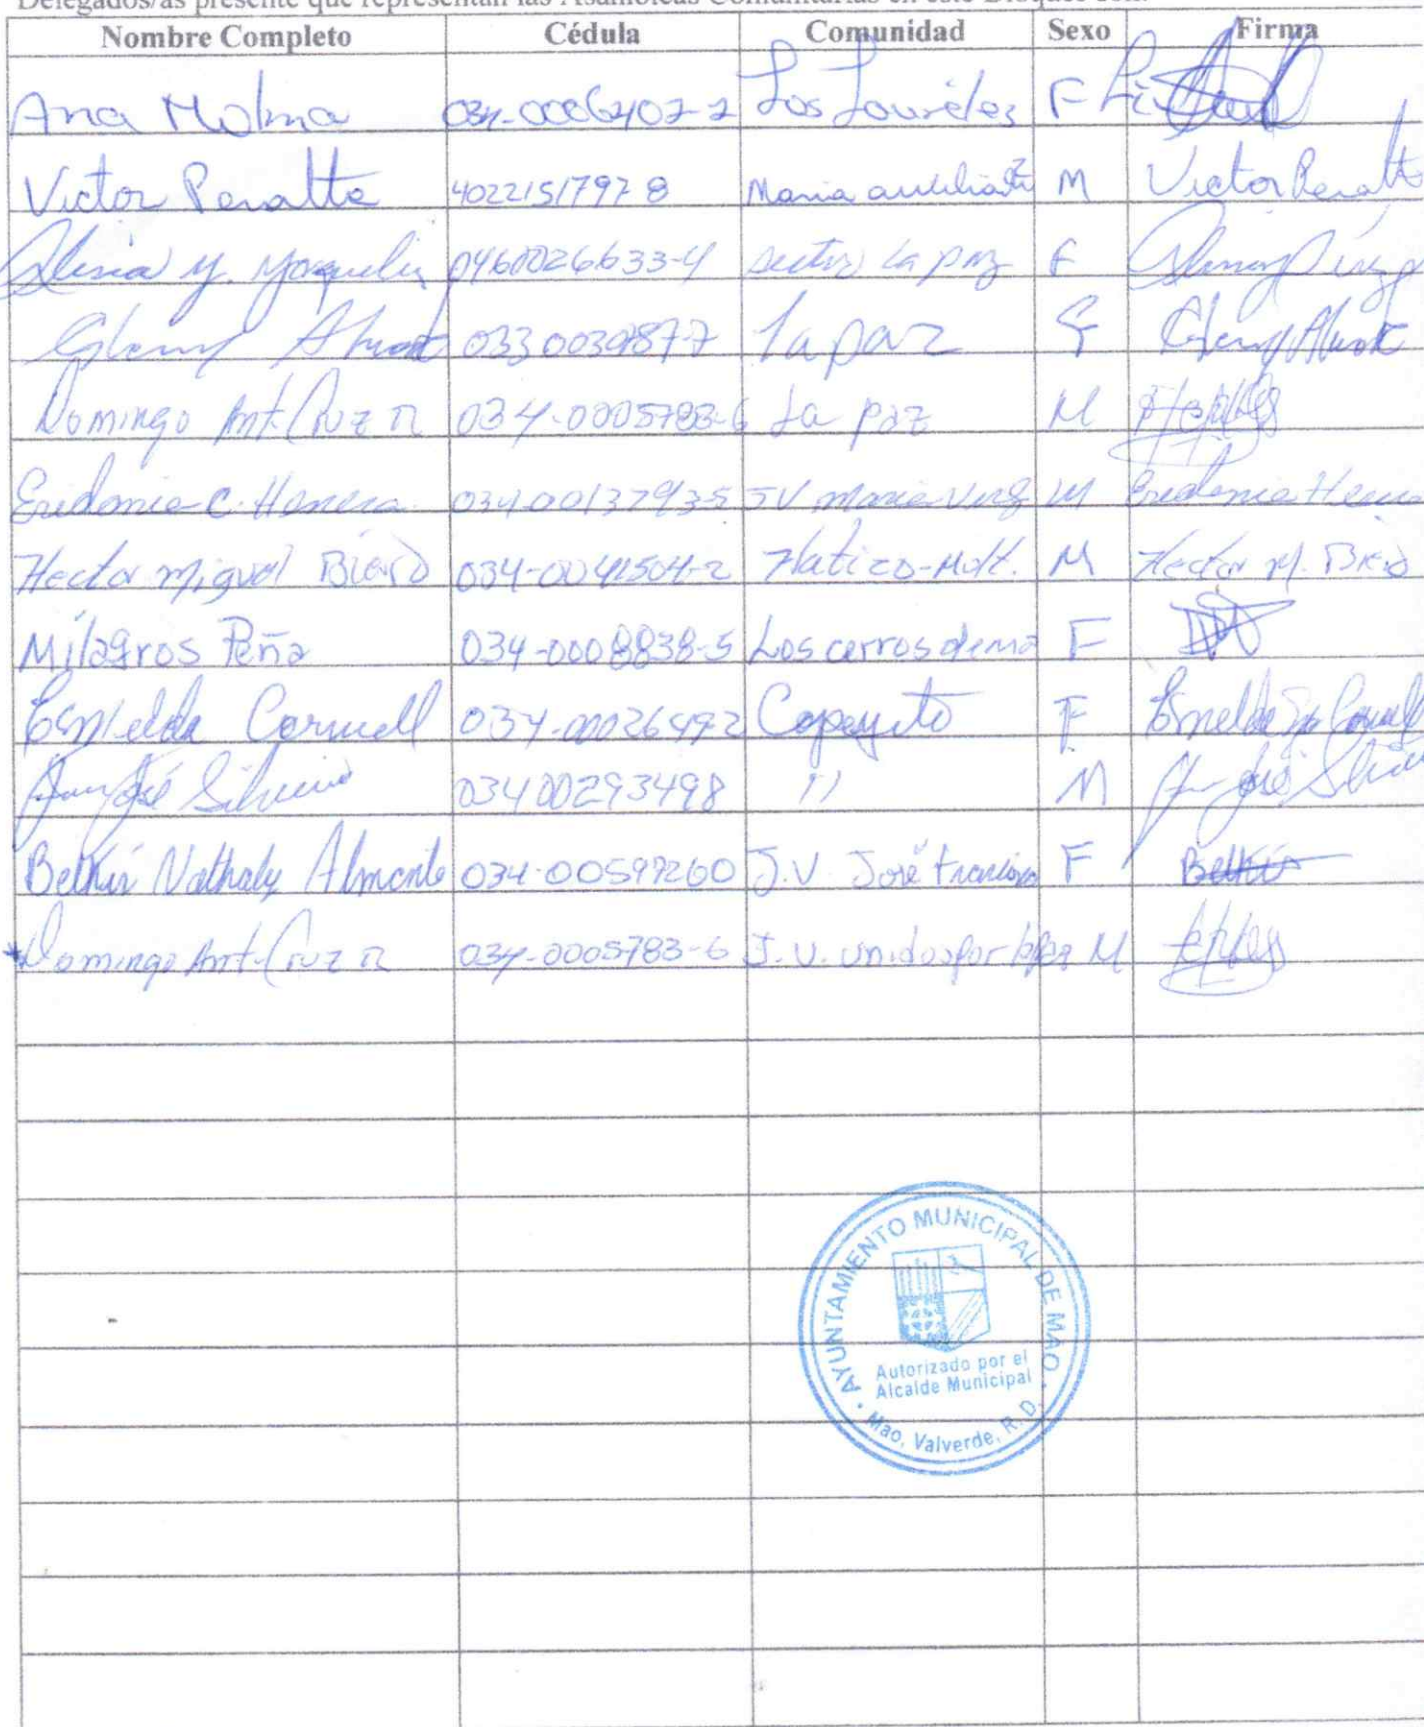 Delegados/as presente que representan las Asambleas Comunitarias en este Bloques son:
Nombre Completo Cédula Comunidad Sexo Firma
Ana Molina Los Laureles F
Victor Peralta 4022151797 8 Maria M Victor Peralta
0460026633-4 sector la paz F
Glenny 033 0039877 La paz F Glenny
Domingo Ant. Cruz R 034-0005783-6 La paz M
Eridania C. Herrera 034-00137935 J V Maria M Eridania
Hector Miguel 034-0041504-2 Hatico-Mált. M Hector M.
Milagros Peña 034-0008838-5 Los cerros de ma F
Esmelda 034-00026492 Copeyito F Esmelda
Juan José Silverio 03400293498 " M José
Belkis Nathaly Almonte 034-00599260 J.V. José Francisco F Belkis
*Domingo Ant. Cruz R 034-0005783-6 J.V. unidos por la paz M
AYUNTAMIENTO MUNICIPAL DE MAO
Autorizado por el
Alcalde Municipal
Mao, Valverde, R.D.